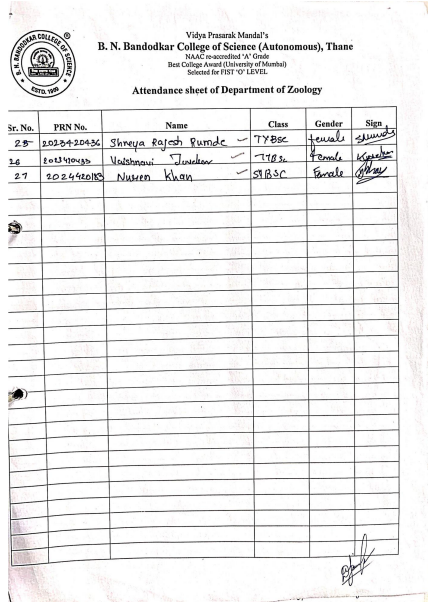 B. N. BANDODKAR COLLEGE OF SCIENCE
ESTD. 1980
Vidya Prasarak Mandal's
B. N. Bandodkar College of Science (Autonomous), Thane
NAAC re-accredited 'A' Grade
Best College Award (University of Mumbai)
Selected for FIST 'O' LEVEL
Attendance sheet of Department of Zoology
Sr. No. PRN No. Name Class Gender Sign
25 2023420436 Shreya Rajesh TYBSC female
26 Vaishnavi TYBSc Female
27 2024420183 Khan SYBSC Female